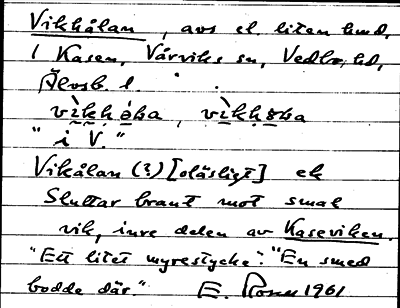 Vikhålan, avs el. liten hmd,
i Kasen, Vårviks sn, Vedbo hd,
Älvsb. l.
"i V."
Vikålan (?) [oläsligt] ek
Sluttar brant mot smal
vik, inre delen av Kaseviken.
"Ett litet myrestycke". "En smed
bodde där." E. 1961